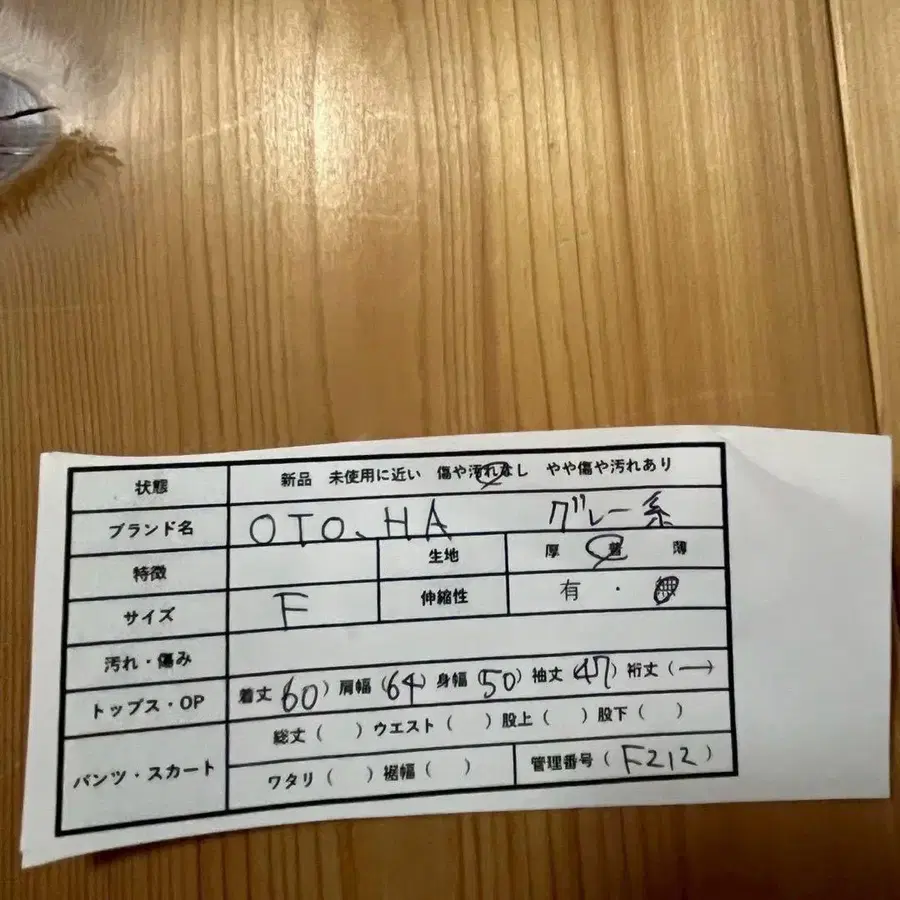 状態 新品 未使用に近い 傷や汚れなし やや傷や汚れあり
ブランド名 OTO、HA グレー系
特徴 生地 厚 普 薄
サイズ F 伸縮性 有 ・ 無
汚れ・傷み
トップス・OP 着丈(60) 肩幅(64) 身幅(50) 袖丈(47) 裄丈(ー)
パンツ・スカート 総丈( ) ウエスト( ) 股上( ) 股下( )
ワタリ( ) 裾幅( ) 管理番号(F212)